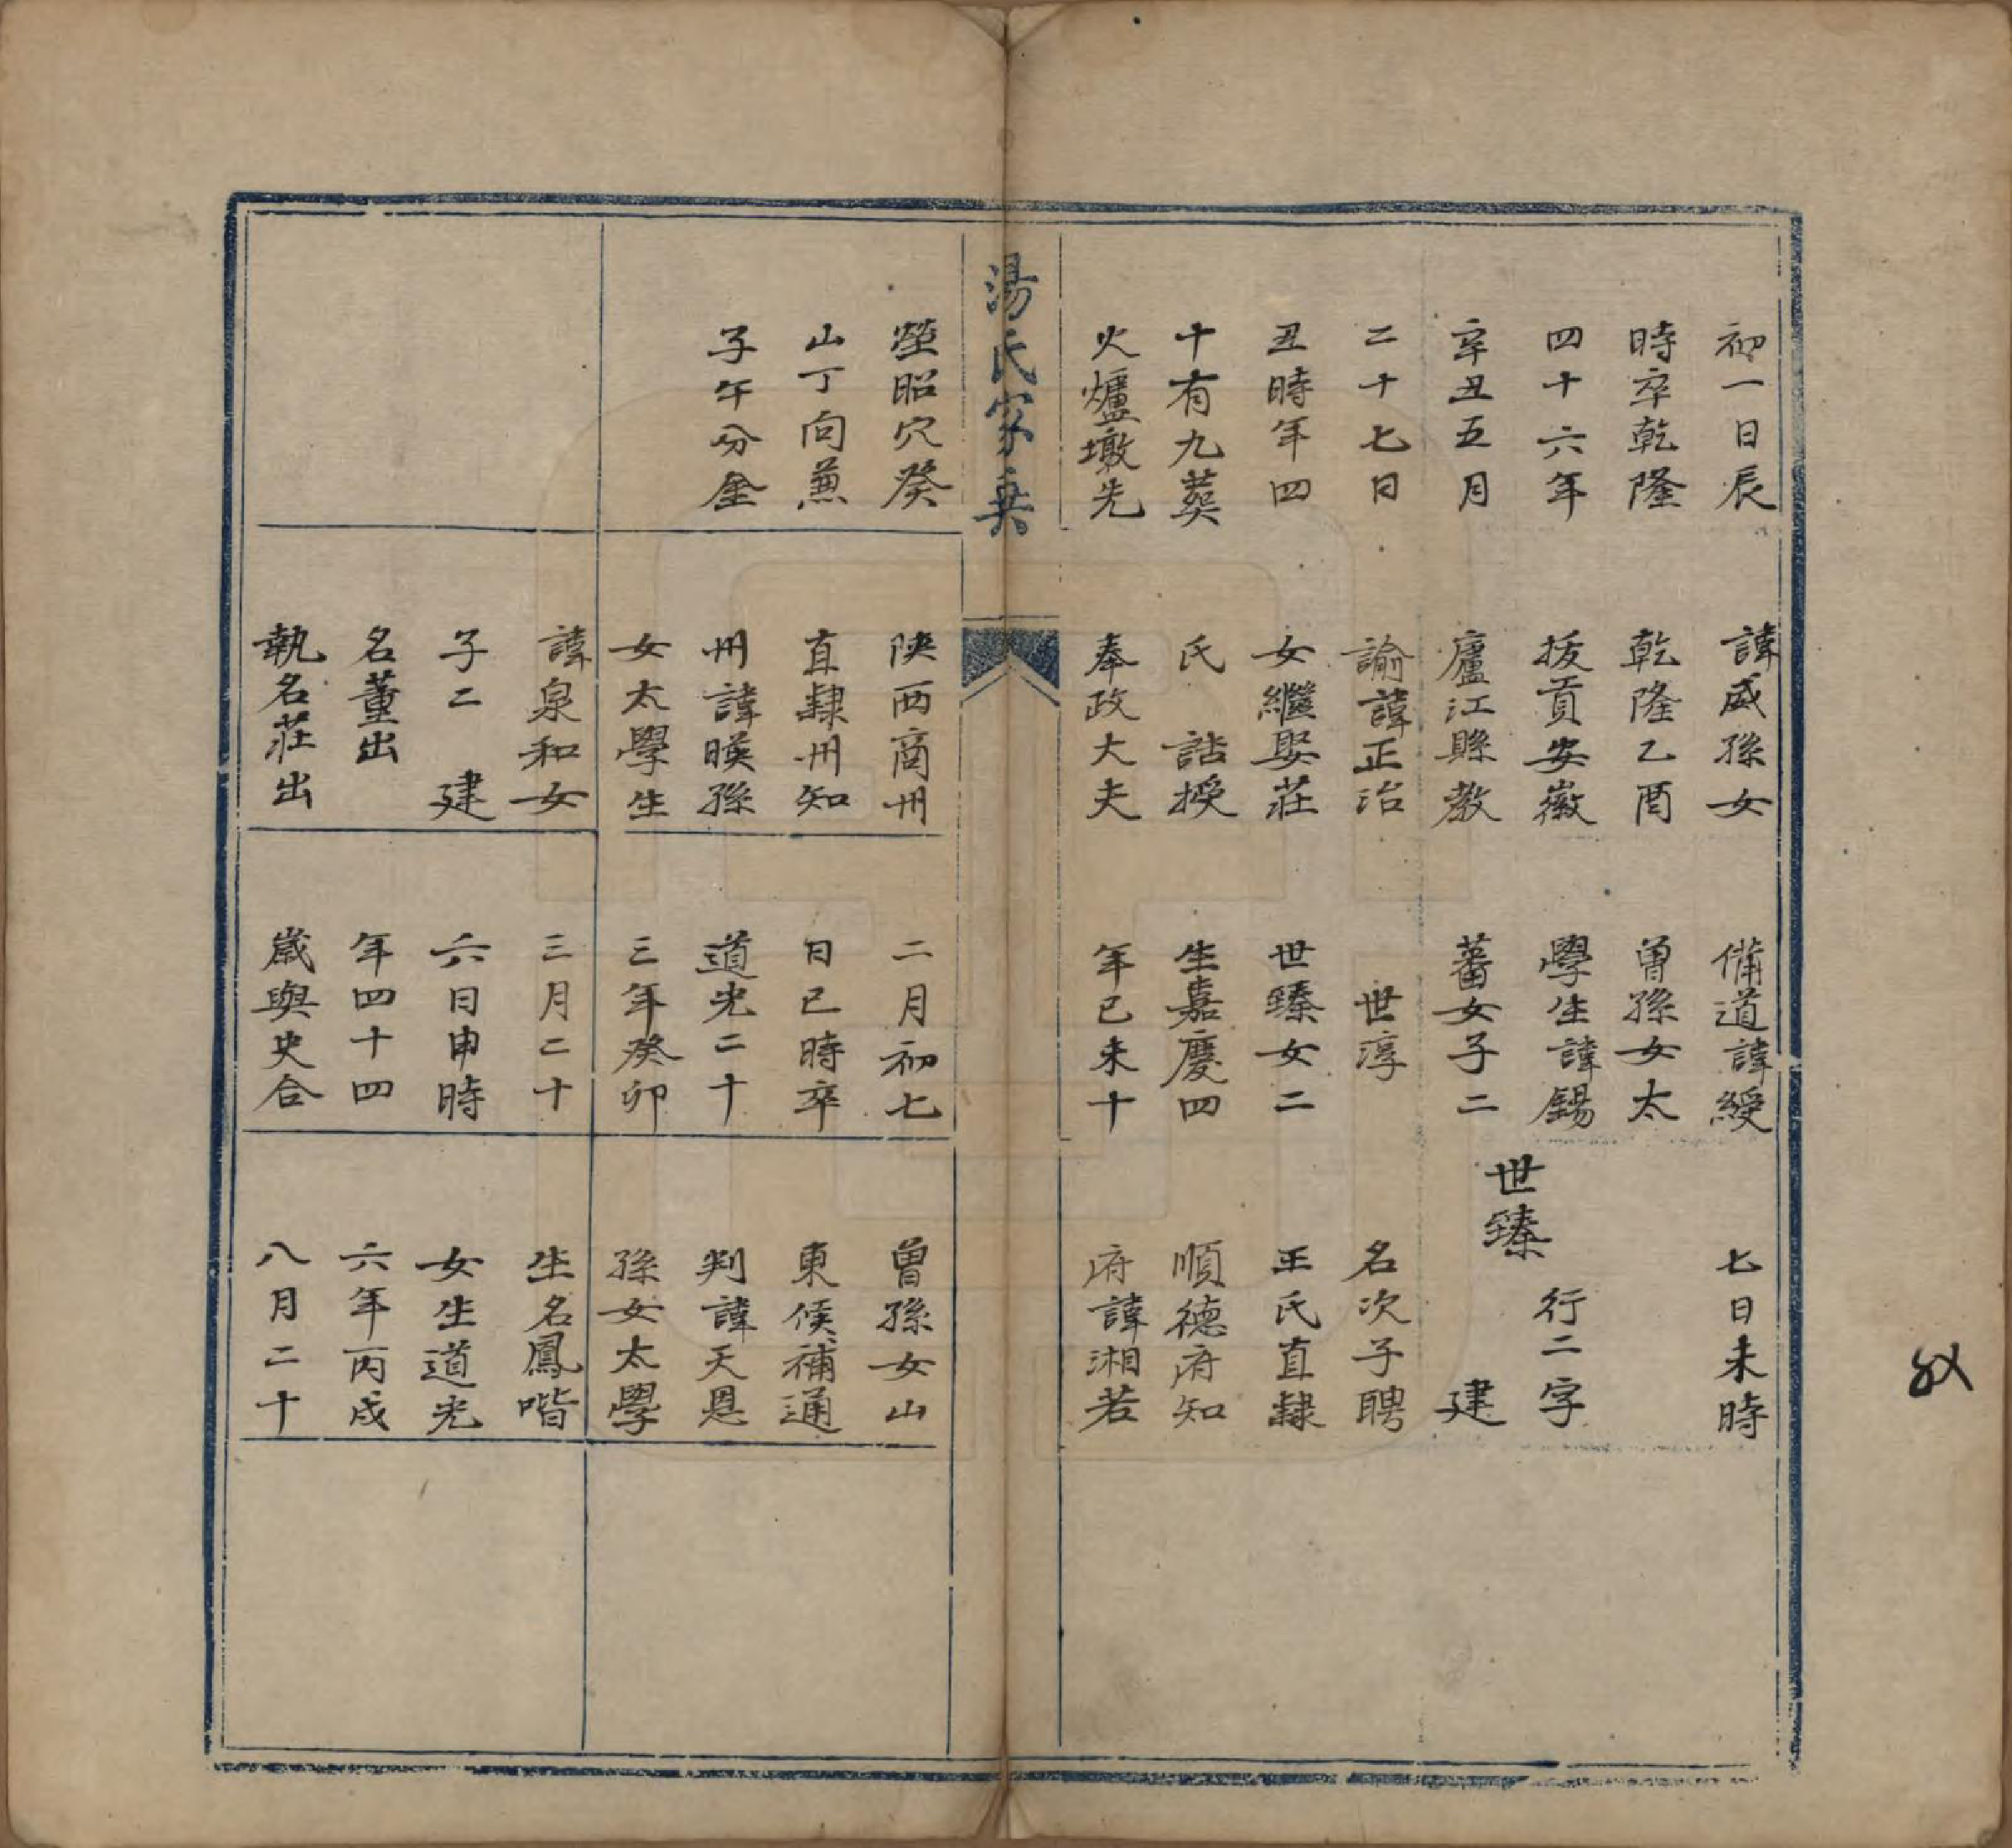 初一日辰
時卒乾隆
四十六年
辛丑五月
二十七日
丑時年四
十有九葬
火爐墩先
諱咸孫女
乾隆乙酉
拔貢安徽
廬江縣教
諭諱正治
女繼娶莊
氏 誥授
奉政大夫
備道諱綬
曾孫女太
學生諱錫
蕃女子二
世淳
世臻女二
生嘉慶四
年己未十
七日未時
世臻
行二字
建
名次子聘
王氏直隸
順德府知
府諱湘若
湯氏家乘
塋昭穴癸
山丁向兼
子午分金
陝西商州
直隸州知
州諱暎孫
女太學生
諱泉和女
子二 建
名董出
執名莊出
二月初七
日巳時卒
道光二十
三年癸卯
三月二十
六日申時
年四十四
歲與史合
曾孫女山
東候補通
判諱天恩
孫女太學
生名鳳喈
女生道光
六年丙戌
八月二十